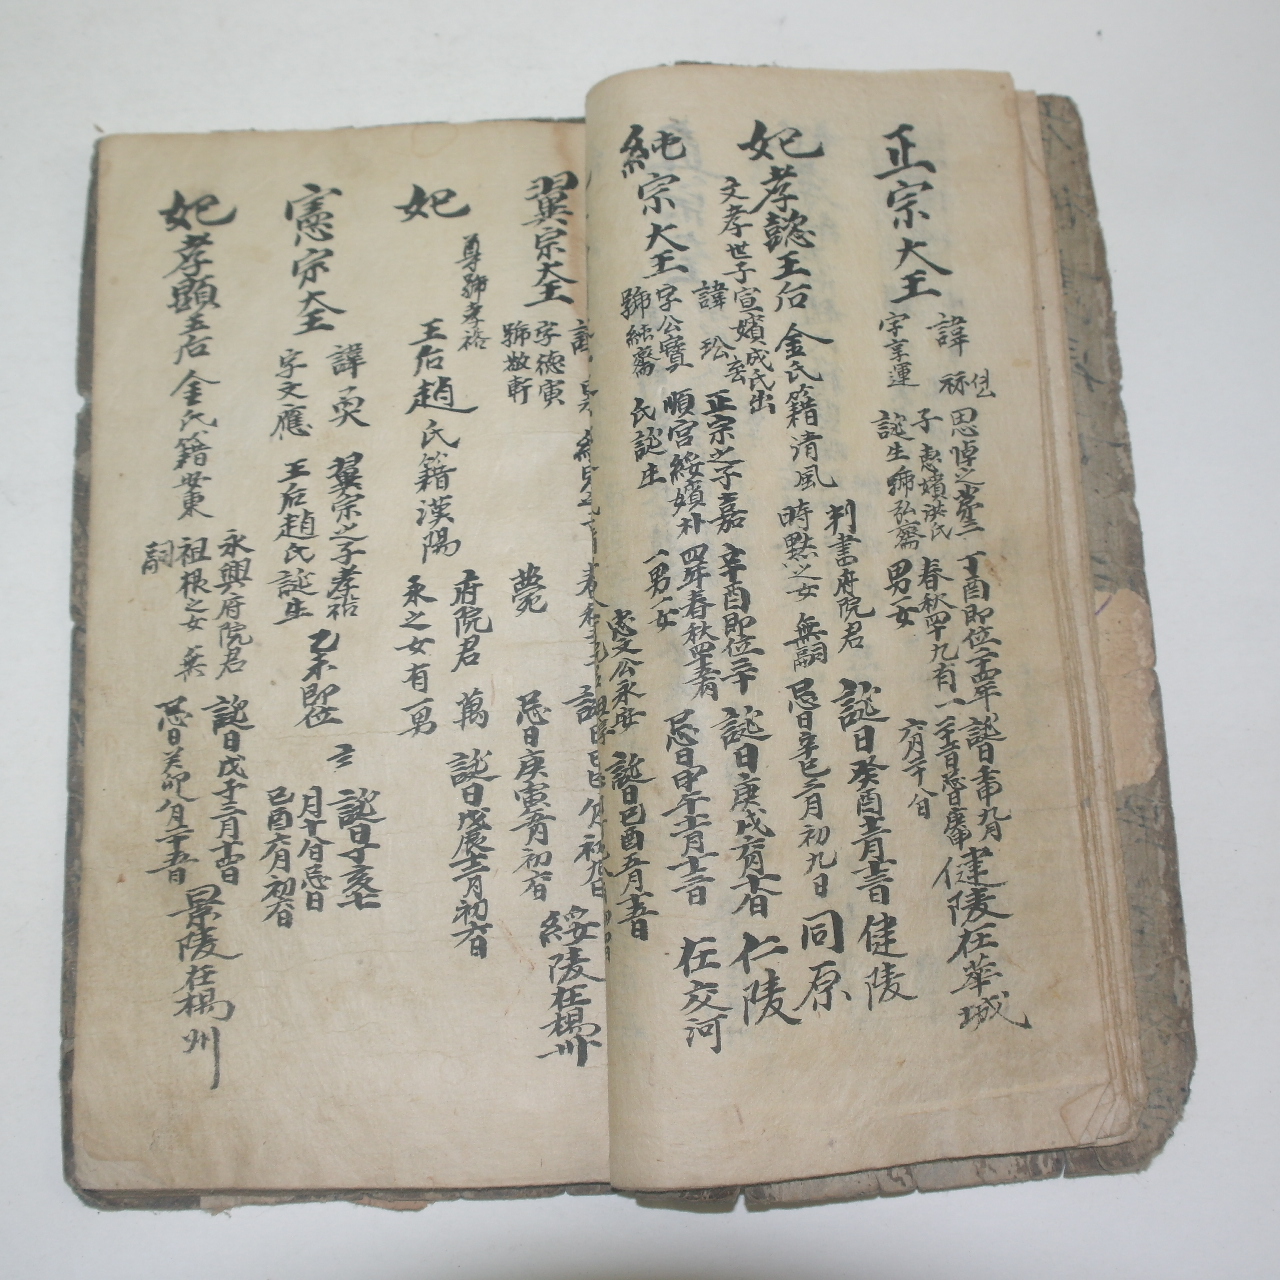 正宗大王
諱 祘
字亨運
思悼之第二
子惠嬪洪氏
誕生號弘齋
丁酉即位二十四年
春秋四十九有一
男女
健陵在華城
妃孝懿王后 金氏籍清風
判書府院君
時默之女 無嗣
誕日癸酉十二月十三日
忌日辛巳三月初九日
健陵
同原
文孝世子宣嬪成氏出
純宗大王
諱 玜
字公寶
號純齋
正宗之子嘉
順宮綏嬪朴
氏誕生
辛酉即位三十
四年春秋四十五有
一男一女
誕日庚戌六月十八日
忌日甲午十一月十三日
仁陵
在交河
忠文公永安
誕日己酉五月十五日
翼宗大王
字德寅
號敬軒
薨
忌日庚寅五月初六日
綏陵在楊州
妃
尊號孝裕
王后趙氏籍漢陽
府院君 萬
永之女有一男
誕日戊辰十二月初六日
憲宗大王
諱奐
字文應
翼宗之子孝裕
王后趙氏誕生
乙未即位
誕日丁亥七
月十八日忌日
己酉六月初六日
妃孝顯王后金氏籍安東
永興府院君
祖根之女 無
嗣
誕日戊子三月十四日
忌日癸卯八月二十五日
景陵在楊州